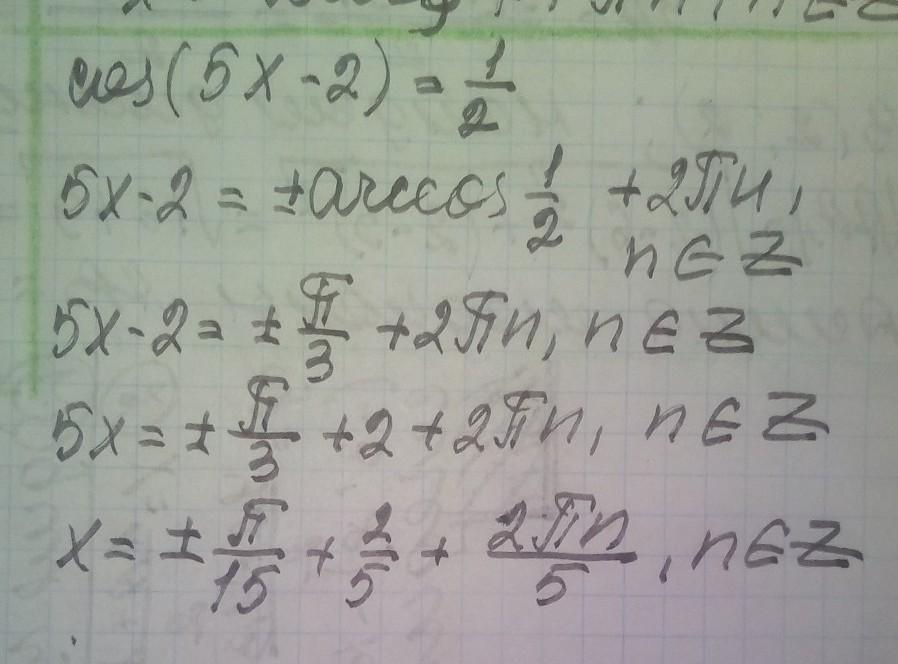 cos(5x-2) = 1/2
5x-2 = ±arccos 1/2 + 2πn,
n∈Z
5x-2 = ± π/3 + 2πn, n∈Z
5x = ± π/3 + 2 + 2πn, n∈Z
x = ± π/15 + 2/5 + 2πn/5, n∈Z